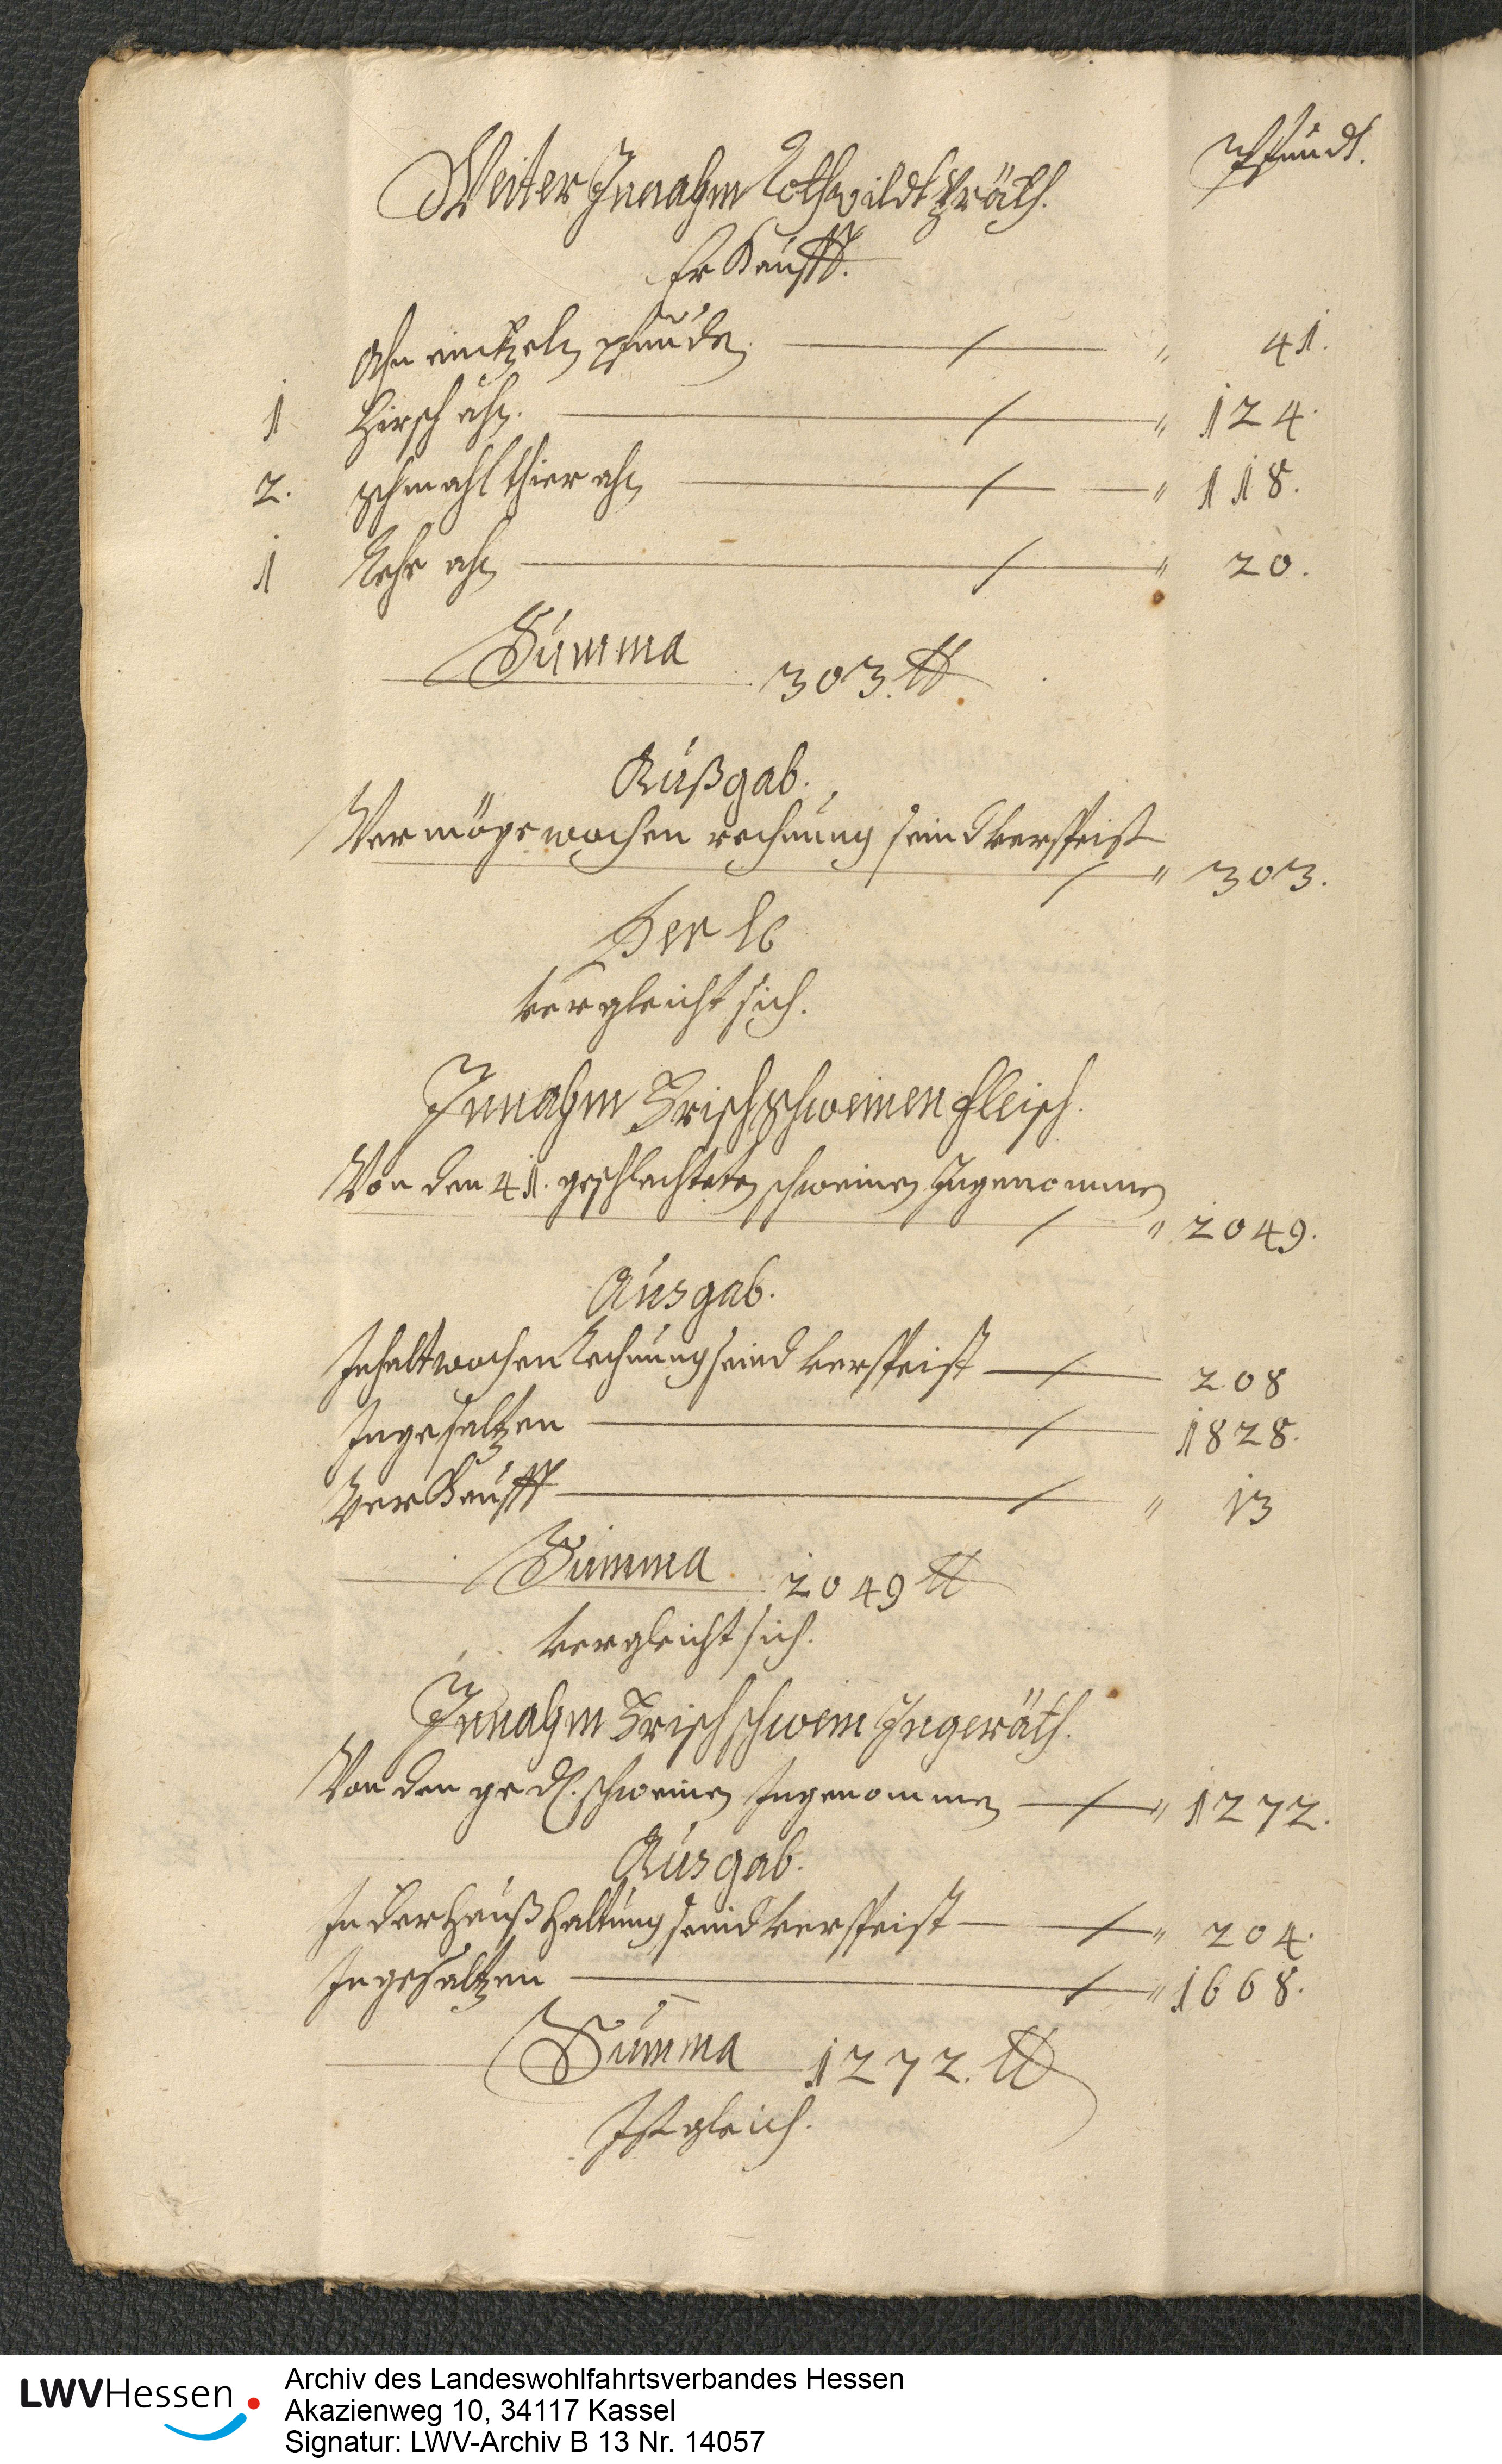 Pfundt.
Weiter Innahm Rothwildtpräth.
Er Kaufft.
Ahn eintzeln pfunden — " 41.
1 Hirsch ahn. — " 124.
2. schmahlthier ahn — " 118.
1 Rehe ahn — " 20.
Summa 303. ℔
Außgab.
Vermöge wochen rechnung seind verspeist
— " 303.
Per se
vergleicht sich.
Innahm Frisch schweinen fleisch.
Von den 41. geschlachteten schweinen Ingenommen
— " 2049.
Ausgab.
Inhalt wochen Rechnung seind verspeist — 208
Ingesaltzen — 1828.
Ver Kaufft — " 13
Summa 2049 ℔
vergleicht sich.
Innahm Frisch schwein Ingeräth.
Von den gedl. schweinen Ingenommen — " 1272.
Ausgab.
In der Haußhaltung seind verspeist — " 204.
Ingesaltzen — " 1068.
Summa 1272. ℔
Ist gleich.
LWVHessen
Archiv des Landeswohlfahrtsverbandes Hessen
Akazienweg 10, 34117 Kassel
Signatur: LWV-Archiv B 13 Nr. 14057